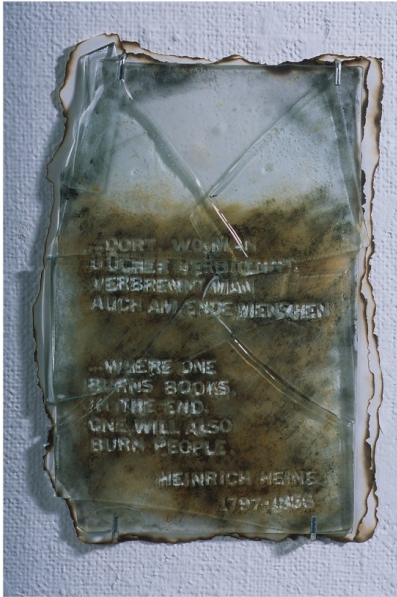 ...DORT, WO MAN
BÜCHER VERBRENNT,
VERBRENNT MAN
AUCH AM ENDE MENSCHEN
...WHERE ONE
BURNS BOOKS,
IN THE END,
ONE WILL ALSO
BURN PEOPLE.
HEINRICH HEINE
1797-1856